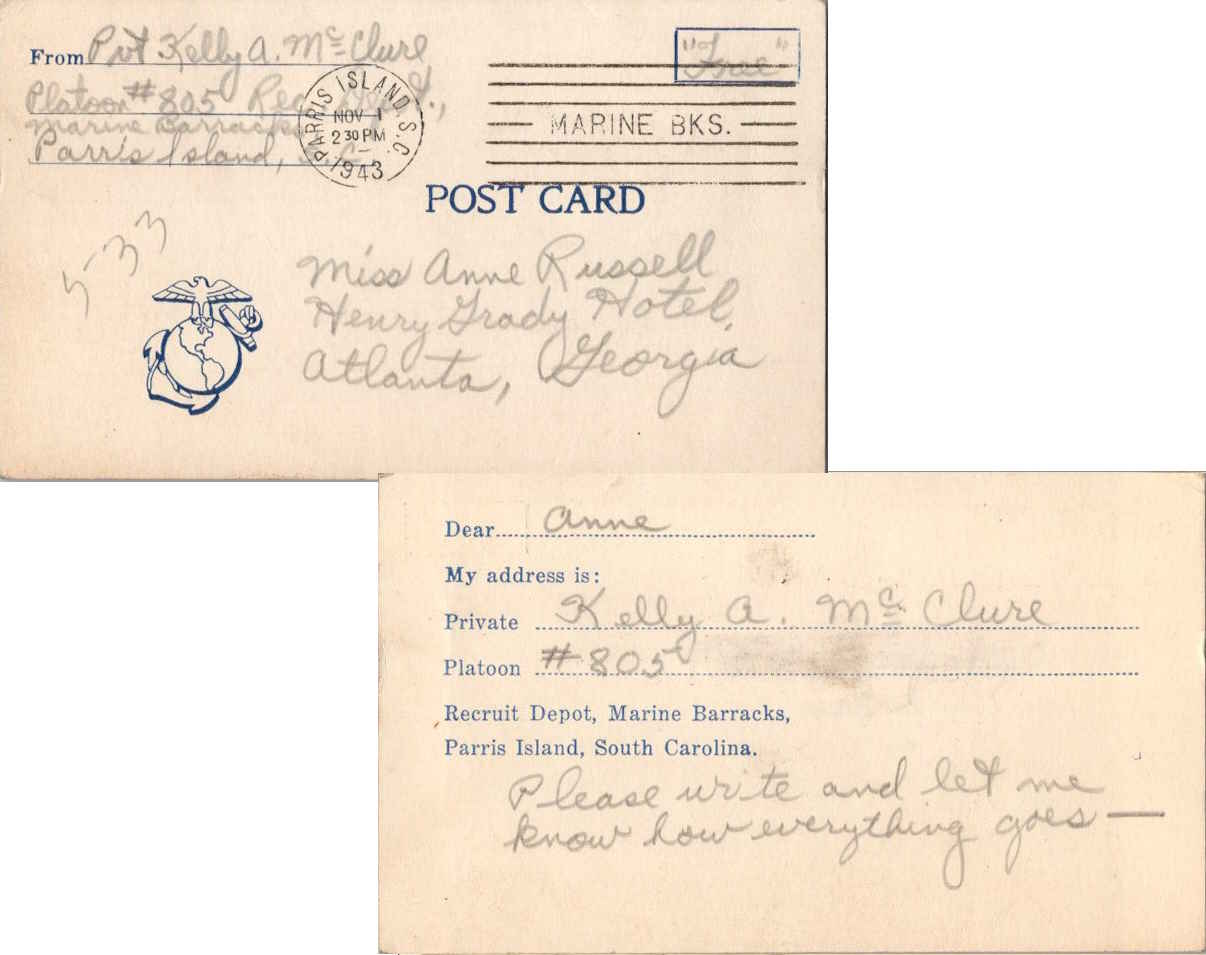 From Pvt Kelly A. McClure
"Free"
Platoon #805 Rec. Depot.,
Marine Barracks
Parris Island, S.C.
PARRIS ISLAND, S.C.
NOV 1
2 30 PM
1943
MARINE BKS.
POST CARD
5-33
Miss Anne Russell
Henry Grady Hotel,
Atlanta, Georgia
Dear Anne
My address is:
Private Kelly A. McClure
Platoon #805
Recruit Depot, Marine Barracks,
Parris Island, South Carolina.
Please write and let me
know how everything goes —